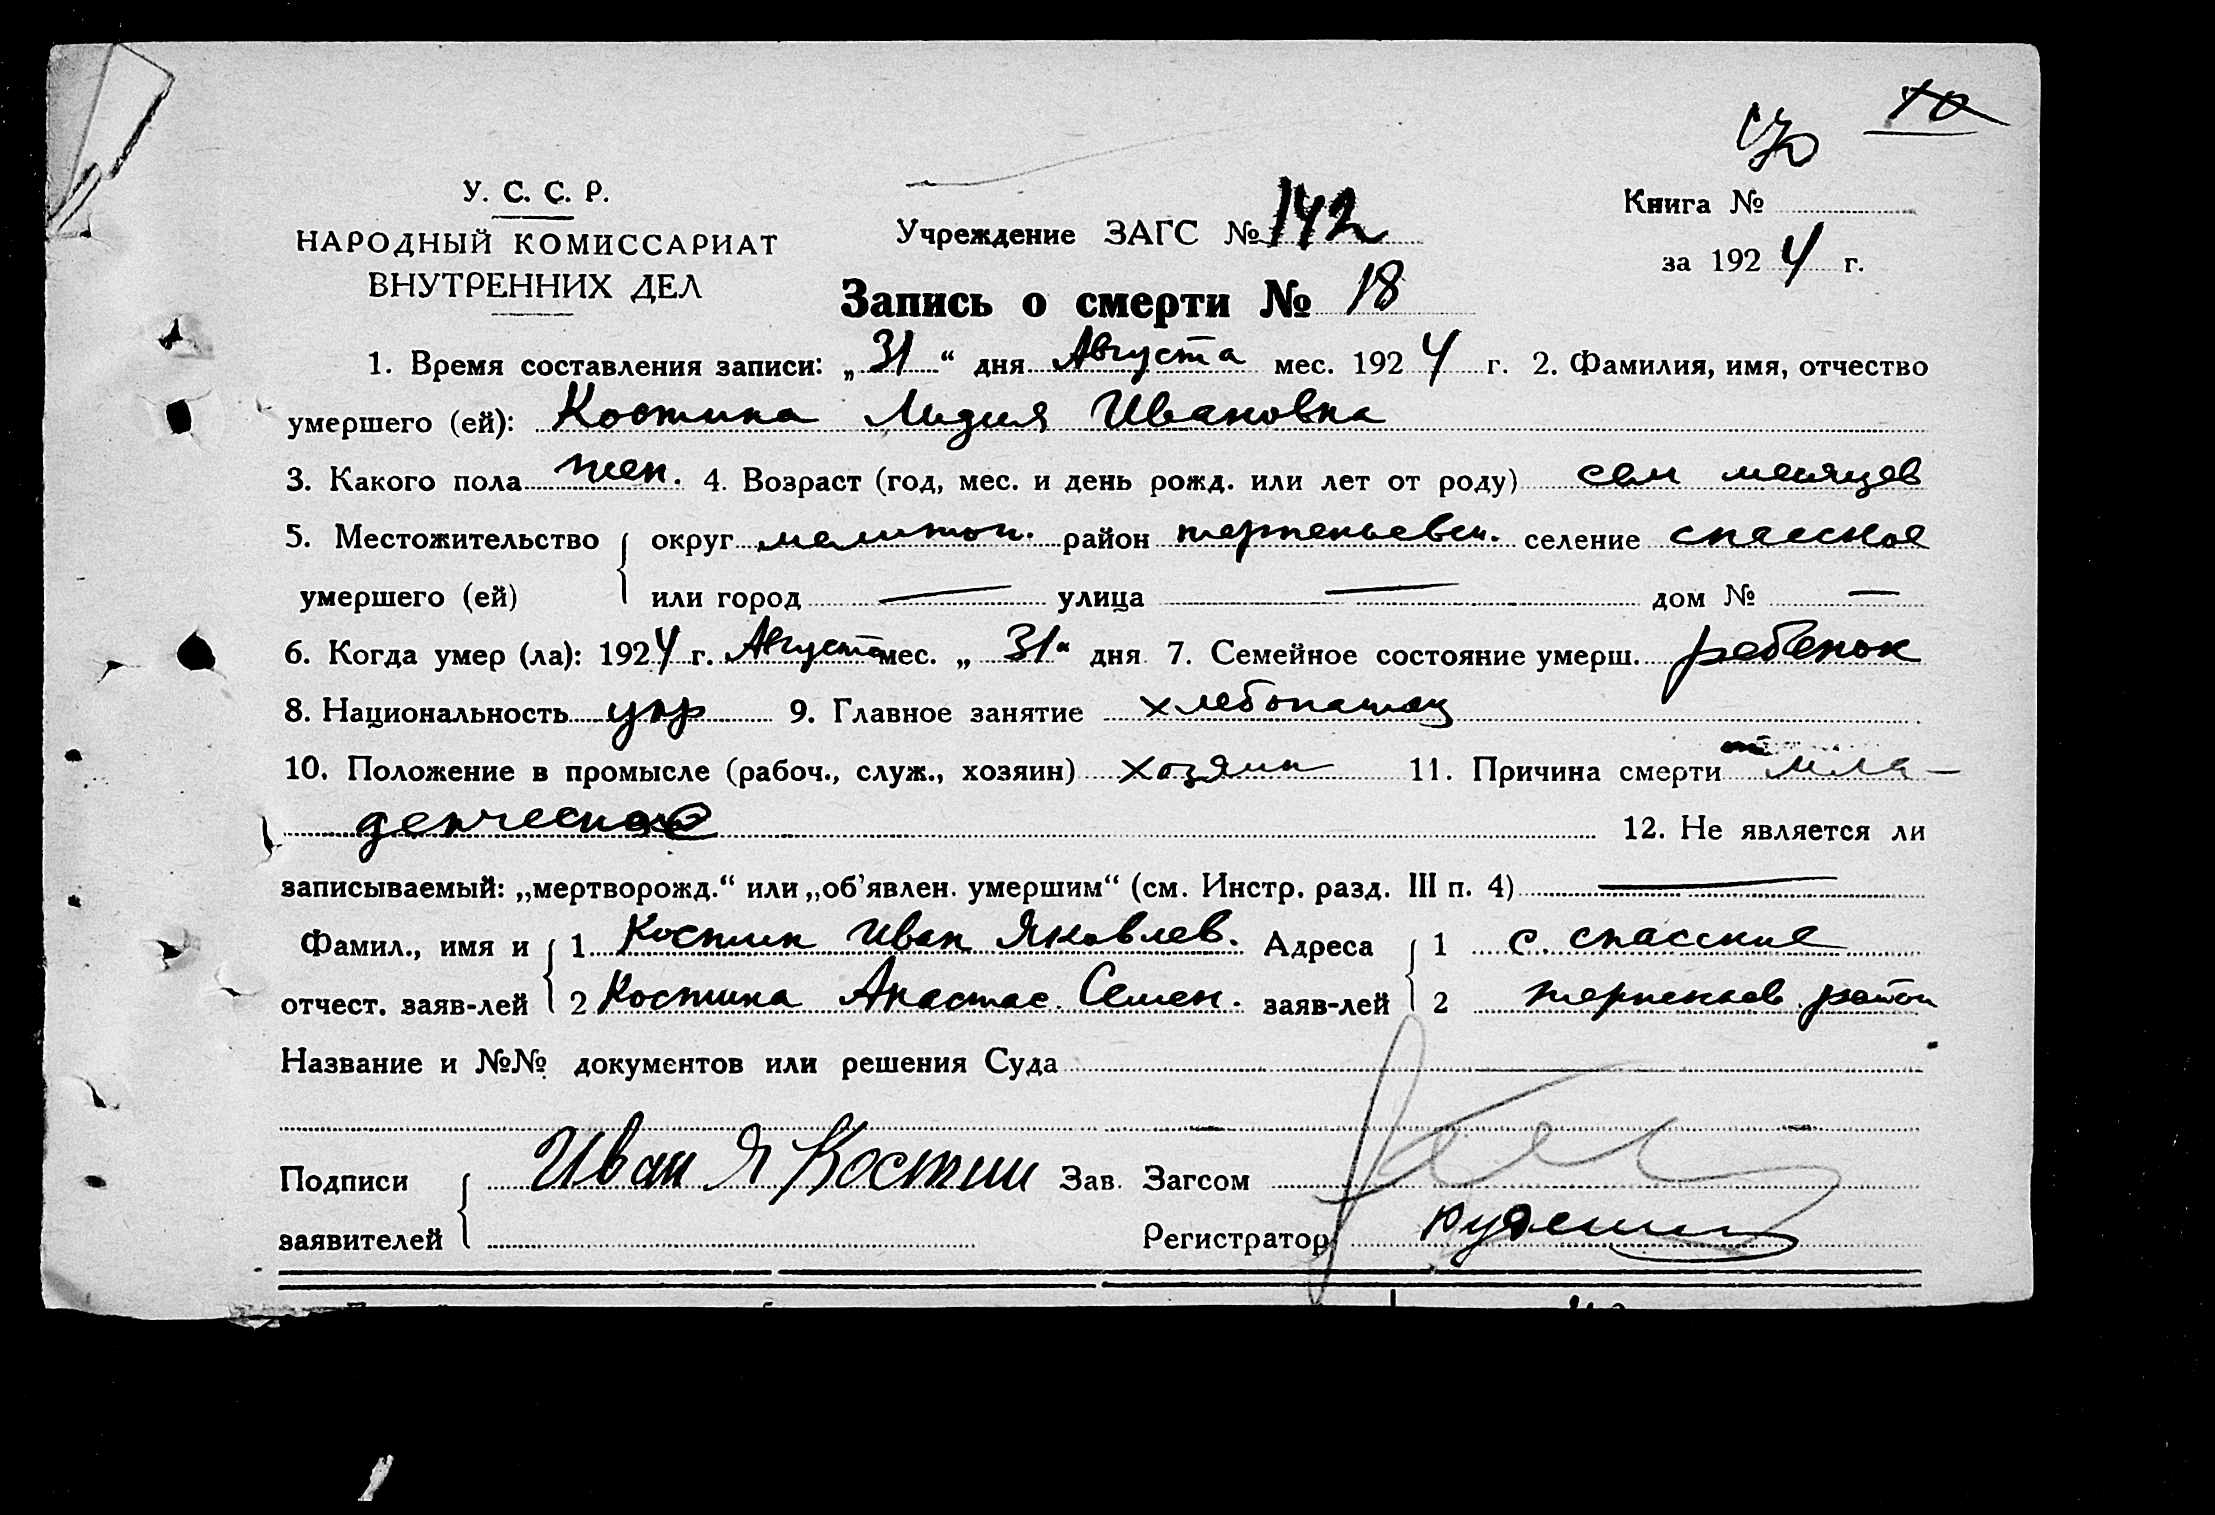 У. С. С. Р.
НАРОДНЫЙ КОМИССАРИАТ
ВНУТРЕННИХ ДЕЛ
10
Учреждение ЗАГС № 142
Книга №
за 1924 г.
Запись о смерти № 18
1. Время составления записи: „31“ дня Августа мес. 1924 г. 2. Фамилия, имя, отчество
умершего (ей): Костина Лидия Ивановна
3. Какого пола жен. 4. Возраст (год, мес. и день рожд. или лет от роду) сем месяцев
5. Местожительство округ мелитоп. район терпеньевск. селение спасское
умершего (ей) или город — улица — дом № —
6. Когда умер (ла): 1924 г. Августа мес. „31“ дня 7. Семейное состояние умерш. ребенок
8. Национальность укр 9. Главное занятие хлебопашец
10. Положение в промысле (рабоч., служ., хозяин) хозяин 11. Причина смерти мла-
денческое 12. Не является ли
записываемый: „мертворожд.“ или „об’явлен. умершим“ (см. Инстр. разд. III п. 4) —
Фамил., имя и 1 Костин Иван Яковлев. Адреса 1 с. спасские
отчест. заяв-лей 2 Костина Анастас. Семен. заяв-лей 2 терпеньев. район
Название и №№ документов или решения Суда
Подписи Иван Я Костин Зав. Загсом
заявителей Регистратор